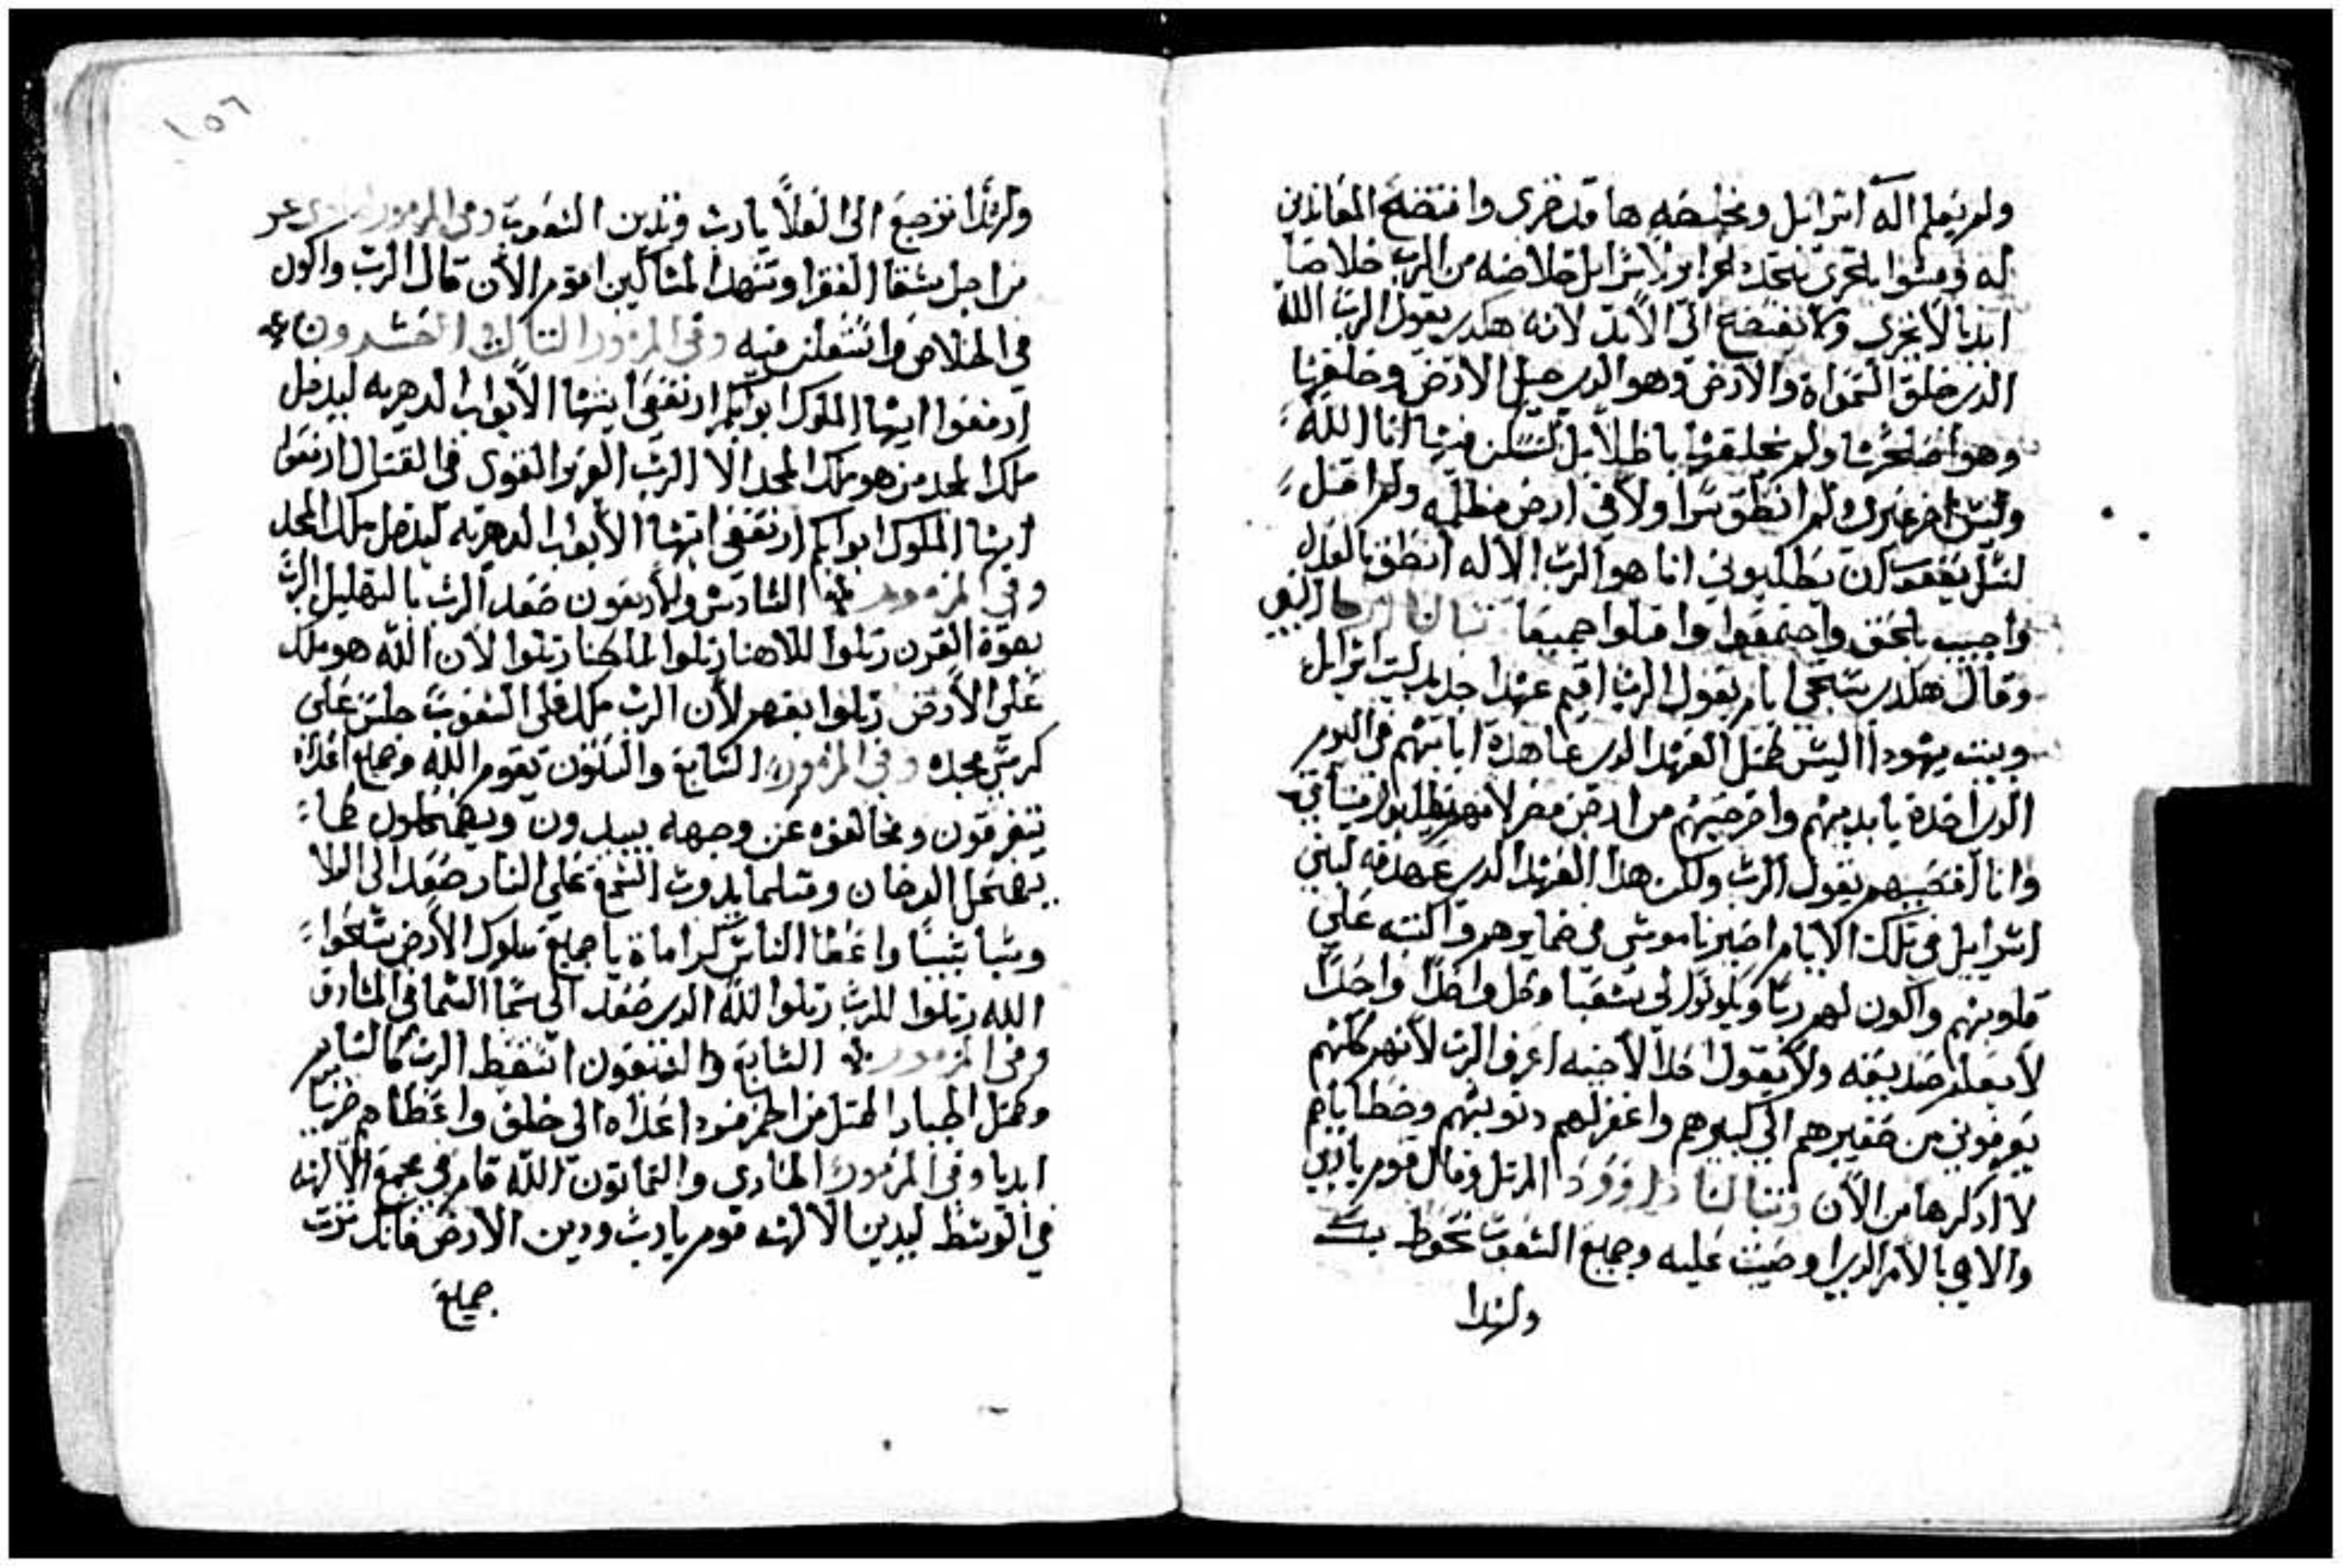 ولم يعلم اله اسرائيل ومخلصه ها قد خزى وافتضح المعاندين
له ومشوا بالخزى اسرايل خلاصه من الرب خلاصا
ابديا لا يخزى ولا يفتضح الى الابد لانه هكدى يقول الرب الله
الدى خلق السمواة والارض وهو الدى جبل الارض وخلقها
وهو اصلحها ولم يخلقها باطلا بل لتسكن فيها انا الله
وليس اخر غيرى ولم انطق سرا ولا في ارض مظلمه ولم اقل
لنسل يعقوب ان يطلبونى انا هو الرب الاله انطق بالعدل
واجيب بالحق واجتمعوا واقبلوا جميعا
وقال هكدى ستجى ايام يقول الرب اقيم عهدا جديد لبيت اسرايل
وبيت يهودا اليس مثل العهد الدى عاهدة ابايهم في اليوم
الدى اخدة بايديهم واخرجتهم من ارض مصر لانهم
وانا يقول الرب ولكن هذا العهد الدى عهدته لبنى
اسرايل في تلك الايام اصير ناموسى في ضمايرهم واكتبه على
قلوبهم واكون لهم ربا ويكونوا لى شعبا وكل واحدا واحدا
لا يعلم صديقه ولا يقول احدا لاخيه اعرف الرب لانهم كلهم
يعرفونى من صغيرهم الى كبيرهم واغفر لهم دنوبهم وخطاياهم
لا ادكرها من الان داوود المرتل وقال قوم ياربى
والاهي بالامر الدى اوصيت عليه وجميع الشعوب تحوط بك
ولهدا
١٥٦
ولهدا نرجع الى العلا يارب وتدين الشعوب وفي المزمور
من اجل شقا الفقرا وتنهد المساكين اقوم الان قال الرب واكون
في الخلاص واستعلن فيه وفى المزمور التالت والعشرون
ارفعوا ايها الملوك ابوابكم ارتفعى ايتها الابواب الدهريه ليدخل
ملك المجد من هو ملك المجد الا الرب العزيز القوى في القتال ارفعوا
ايها الملوك ابوابكم ارتفعى ايتها الابواب الدهريه ليدخل ملك المجد
وفي المزمور السادس والاربعون صعد الرب بالتهليل الرب
بصوة القرن رتلوا للاهنا رتلوا لملكنا رتلوا لان الله هو ملك
على الارض رتلوا بفهم لان الرب ملك على الشعوب جلس على
كرسى مجده وفي المزمور السابع والستون يقوم الله وجميع اعداه
يتفرقون ومخالفوه عن وجهه يبيدون ويضمحلون كما
يضمحل الدخان ومتلما يدوب الشمع على النار صعد الى العلا
وسبا سبيا واعطا الناس كراماة يا جميع ملوك الارض سبحوا
الله رتلوا للرب رتلوا لله الدى صعد الى سما السما في المشارق
وفى المزمور السابع والسبعون استيقظ الرب كالنايم
ومتل الجبار المتل من الخمر فرد اعداه الى خلف واعطاهم خزيا
ابديا وفي المزمور الحادى والتمانون الله قام في مجمع الالهه
في الوسط ليدين الالهه قوم يارب ودين الارض فانك ترت
جميع